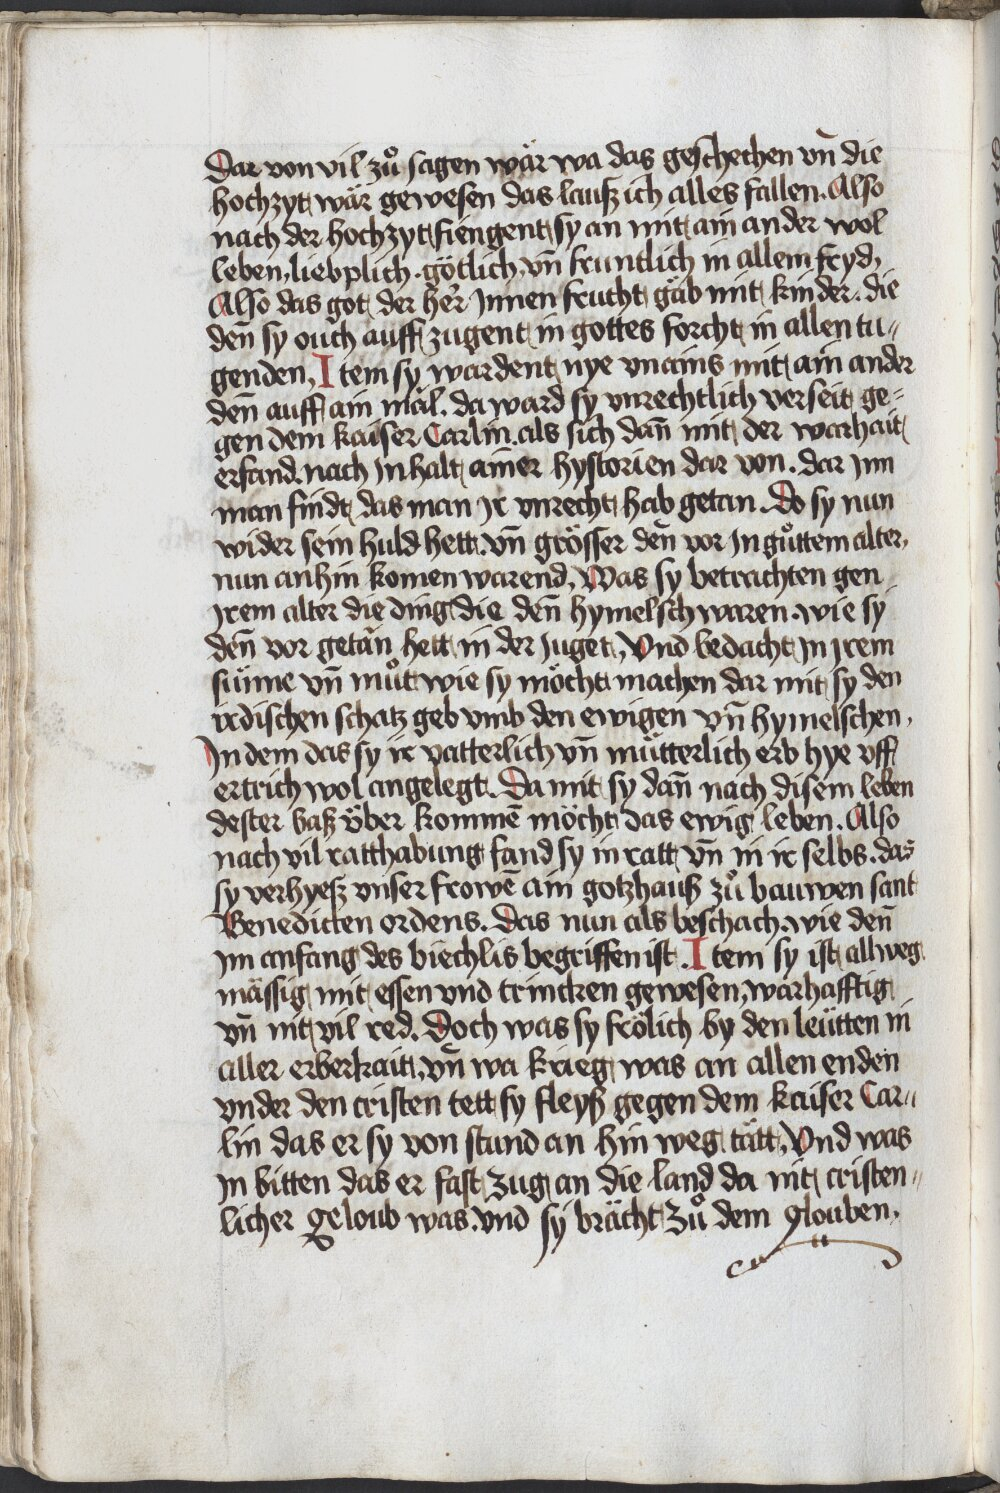 Dar von vil zuͦ sagen wär wa das geschechen vn̄ die
hochzyt wär gewesen das lausz ich alles fallen. Also
nach der hochzyt fiengent sy an mit ain ander wol
leben, lieplich. götlich, vn̄ fruntlich in allem fryd,
Also das got der her Jnnen frucht gäb mit kinder. die
den̄ sy ouch auff zugent in gottes forcht in allen tu-
genden, Item sy wardent nye vnains mit ain ander
den̄ auff ain mäl. da ward sy vnrechtlich verseit ge-
gen dem kaiser Carlin. als sich dan̄ mit der warhait
erfand. nach Jnhalt ainer hystorien dar von. dar Jnn
man findt das man Jr vnrecht hab getan. Do sy nun
wider sein huld hett. vn̄ grösser den̄ vor Jn guͦttem alter,
nun anhin komen warend, Was sy betrachten gen
Jrem alter die ding die den̄ hymelsch waren. wie sy
den̄ vor getän hett in der Juget, Vnd bedacht Jn Jrem
sünne vn̄ muͦt wie sy möcht machen dar mit sy den
irdischen schatz geb vmb den ewigen vn̄ hymelschen,
Jn dem das sy ir vatterlich vn̄ mütterlich erb hye vff
ertrich wol angelegt. Da mit sy dan̄ nach disem leben
dester basz über kommē möcht das ewig leben. Also
nach vil ratthabung fand sy in ratt vn̄ in ir selbs. das
sy verhyesz vnser frowē ain gotzhausz zuͦ bauwen sant
Benedicten ordens. Das nun als beschach. wie den̄
Jm anfang des biechlis begriffen ist. Item sy ist allweg
mässig mit essen vnd trincken gewesen, warhafftig
vn̄ nit vil red. Doch was sy frölich by den leütten in
aller erberkait, vn̄ wa krieg was an allen enden
vnder den cristen tett sy fleysz gegen dem kaiser Car-
lin das er sy von stund an hin weg tätt, Vnd was
Jn bitten das er fast zug an die land da nit cristen-
licher geloub was. vnd sy brächt zuͦ dem glouben.